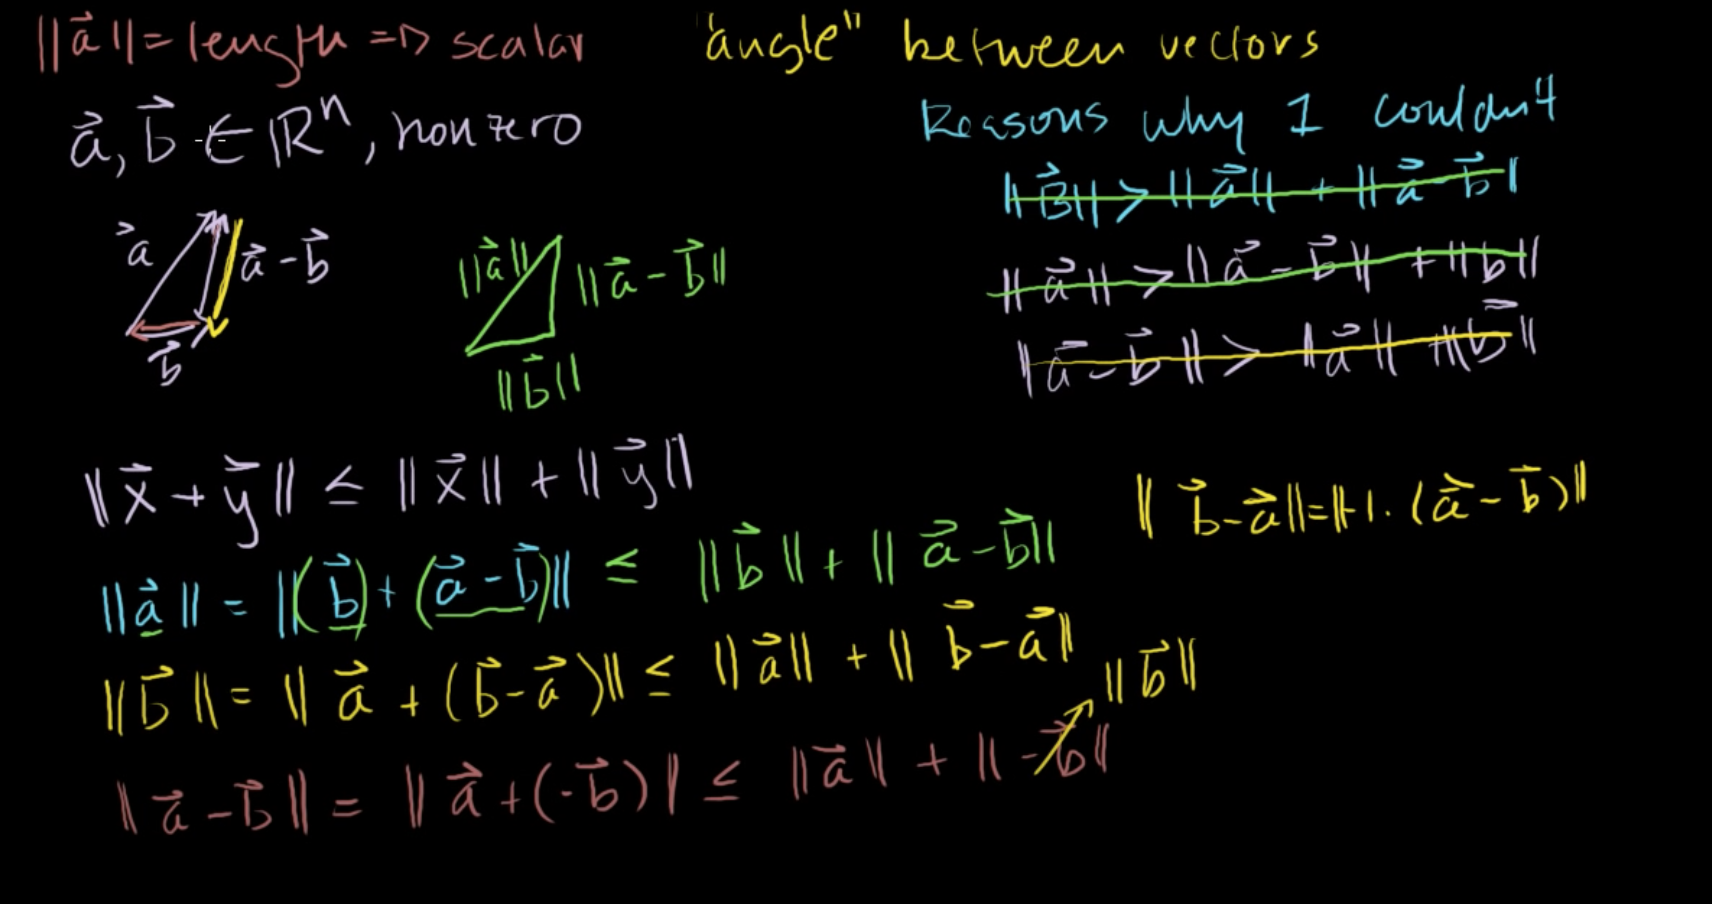 ||a⃗|| = length => scalar
"angle" between vectors
a⃗, b⃗ ∈ ℝⁿ, nonzero
Reasons why I couldn't
||B⃗|| > ||a⃗|| + ||a⃗ - b⃗||
||a⃗|| > ||a⃗ - b⃗|| + ||b⃗||
||a⃗ - b⃗|| > ||a⃗|| + ||b⃗||
a⃗
a⃗ - b⃗
b⃗
||a⃗||
||a⃗ - b⃗||
||b⃗||
||x⃗ + y⃗|| ≤ ||x⃗|| + ||y⃗||
||b⃗ - a⃗|| = ||-1 · (a⃗ - b⃗)||
||a⃗|| = ||(b⃗) + (a⃗ - b⃗)|| ≤ ||b⃗|| + ||a⃗ - b⃗||
||b⃗|| = ||a⃗ + (b⃗ - a⃗)|| ≤ ||a⃗|| + ||b⃗ - a⃗||
||b⃗||
||a⃗ - b⃗|| = ||a⃗ + (-b⃗)|| ≤ ||a⃗|| + ||-b⃗||